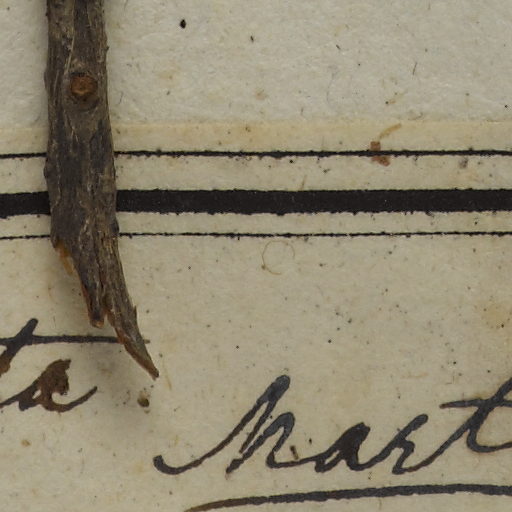 ta Mart